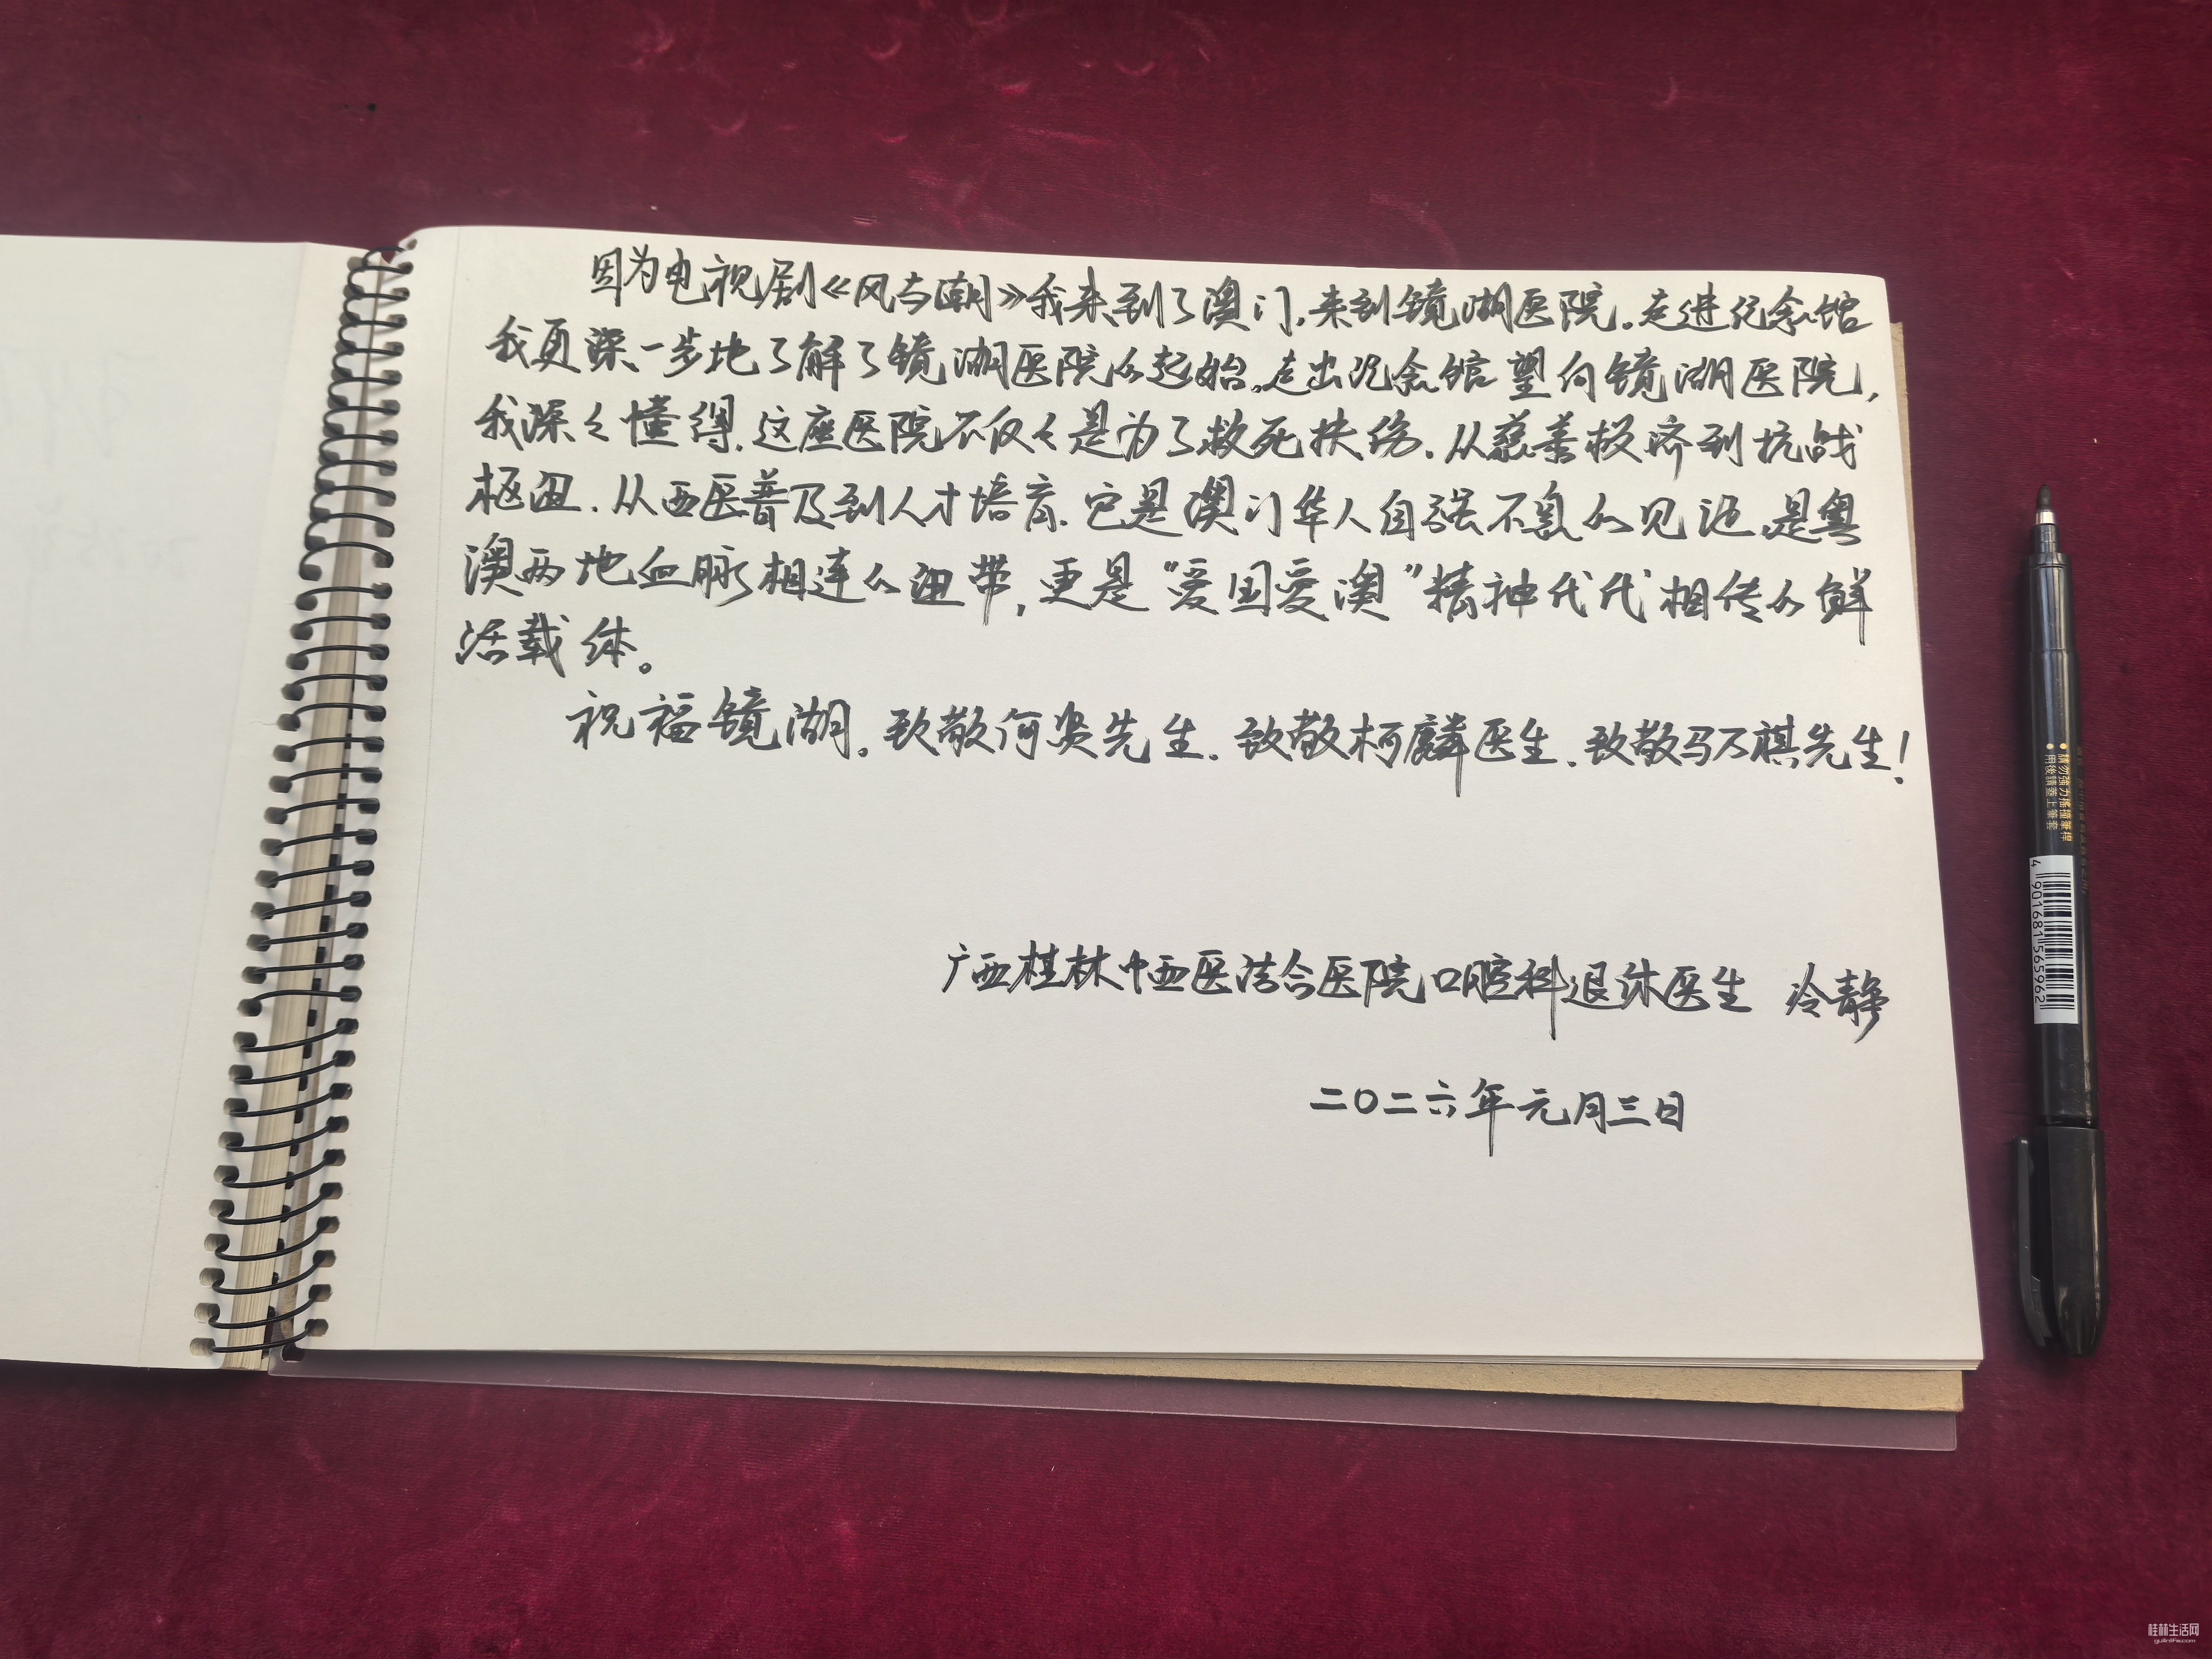 因为电视剧《风与潮》我来到了澳门,来到镜湖医院。走进纪念馆
我更深一步地了解了镜湖医院的起始。走出纪念馆望向镜湖医院,
我深々懂得,这座医院不仅々是为了救死扶伤.从慈善拯济到抗战
枢纽.从西医普及到人才培育.它是澳门华人自强不息的见证,是粤
澳两地血脉相连的纽带,更是“爱国爱澳”精神代代相传的鲜
活载体。
祝福镜湖。致敬何贤先生.致敬柯麟医生.致敬马万祺先生!
广西桂林中西医结合医院口腔科退休医生 冷静
二〇二六年元月三日
請勿強力搖撞筆桿
用後請蓋上筆套
4 901681 565962
桂林生活网
guilinlife.com